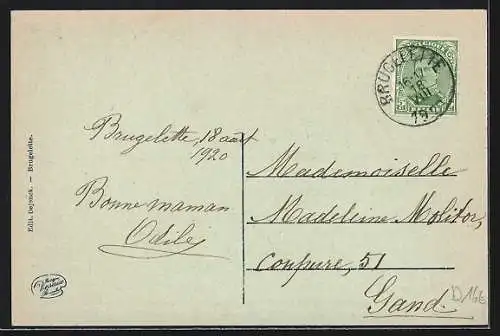 BRUGELETTE
18
VIII
Brugelette, 18 août
1920
Bonne maman
Odile
Mademoiselle
Madeleine Molitor,
Coupure, 51
Gand.
Edit. Dejonck. — Brugelette.